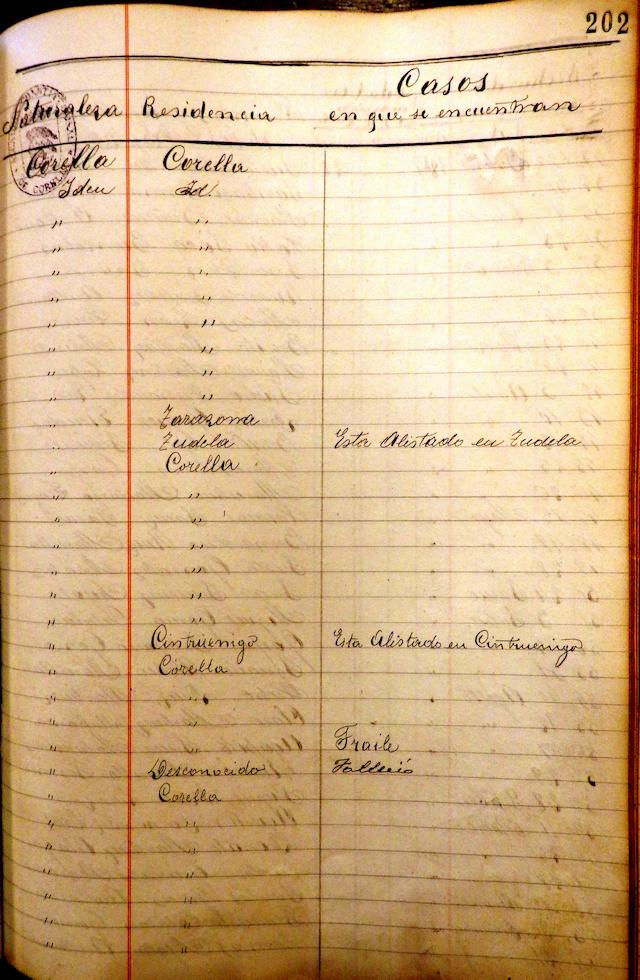 202
Casos
Naturaleza Residencia en que se encuentran
Corella Corella
Idem Id.
" "
" "
" "
" "
" "
" "
" "
" "
" Tarazona
" Tudela Esta Alistado en Tudela
" Corella
" "
" "
" "
" "
" "
" "
" Cintruenigo Esta Alistado en Cintruenigo
" Corella
" "
" "
" Fraile
" Desconocido Falleció
" Corella
" "
" "
" "
" "
" "
" "